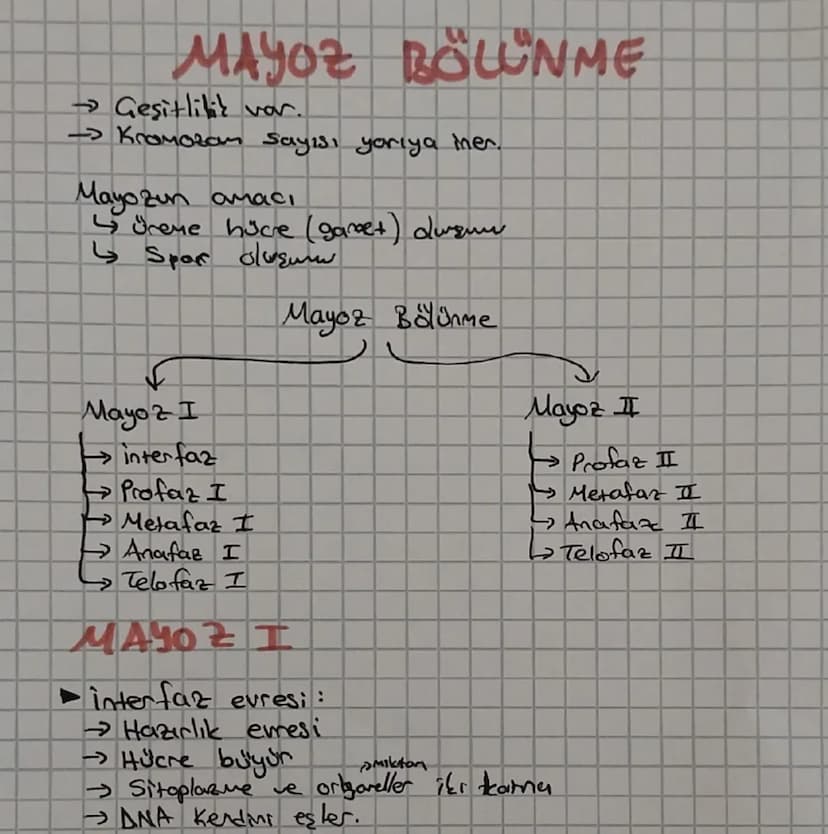 MAYOZ BÖLÜNME
→ Çeşitlilik var.
→ Kromozom sayısı yarıya iner.
Mayozun amacı
↳ üreme hücre (gamet) oluşumu
↳ Spor oluşumu
Mayoz Bölünme
Mayoz I
Mayoz II
→ interfaz
→ Profaz I
→ Metafaz I
→ Anafaz I
→ Telofaz I
→ Profaz II
→ Metafaz II
→ Anafaz II
→ Telofaz II
MAYOZ I
► interfaz evresi:
→ Hazırlık evresi
→ Hücre büyür
→ miktarı
→ Sitoplazma ve organeller iki katına
→ DNA kendini eşler.